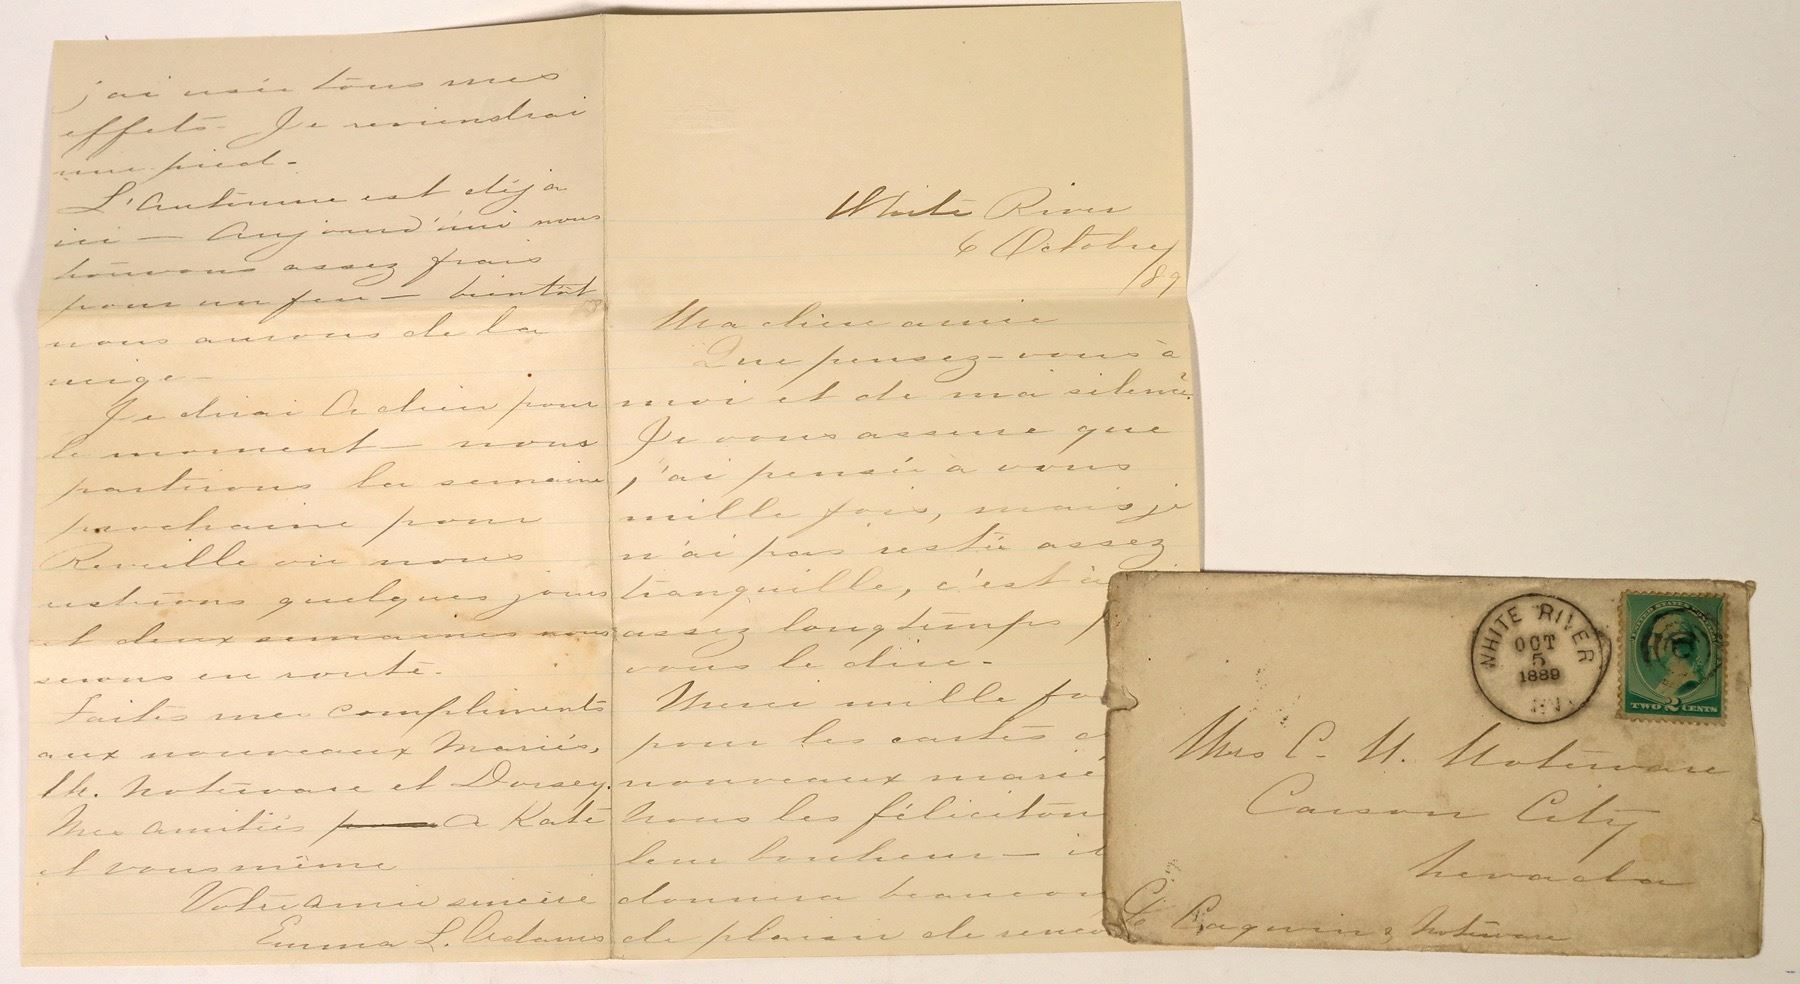 White River
6 Octobre/
/89
Ma chere amie
Que pensez-vous à
moi et de ma silence.
Je vous assure que
j'ai pensée à vous
mille fois, mais je
n'ai pas restée assez
tranquille, c'est à
assez longtemps
vous le dire-
Merci mille
pour les cartes
nouveaux marié
Nous les féliciton
leur bonheur —
donnera beaucou
de plaisir de
j'ai usée tous mes
effets- Je reviendrai
une pied-
L'Automne est déja
ici — Aujourd'hui nous
trouvons assez frais
pour un feu — bientôt
nous aurons de la
niege-
Je dirai Adieu pour
le moment — nous
partirons la semaine
prochaine pour
Reveille où nous
resterons quelques jours
et deux semaines nous
serons en route-
Faites mes compliments
aux nouveaux Mariés,
Noteware et Dorsey.
Mes amitiés a Kate
et vous même
Votre amie sincere
Emma L. Adams
WHITE RIVER
OCT
5
1889
NEV.
TWO 2 CENTS
Mrs C. N. Noteware
Carson City
Nevada
Cagwin & Noteware